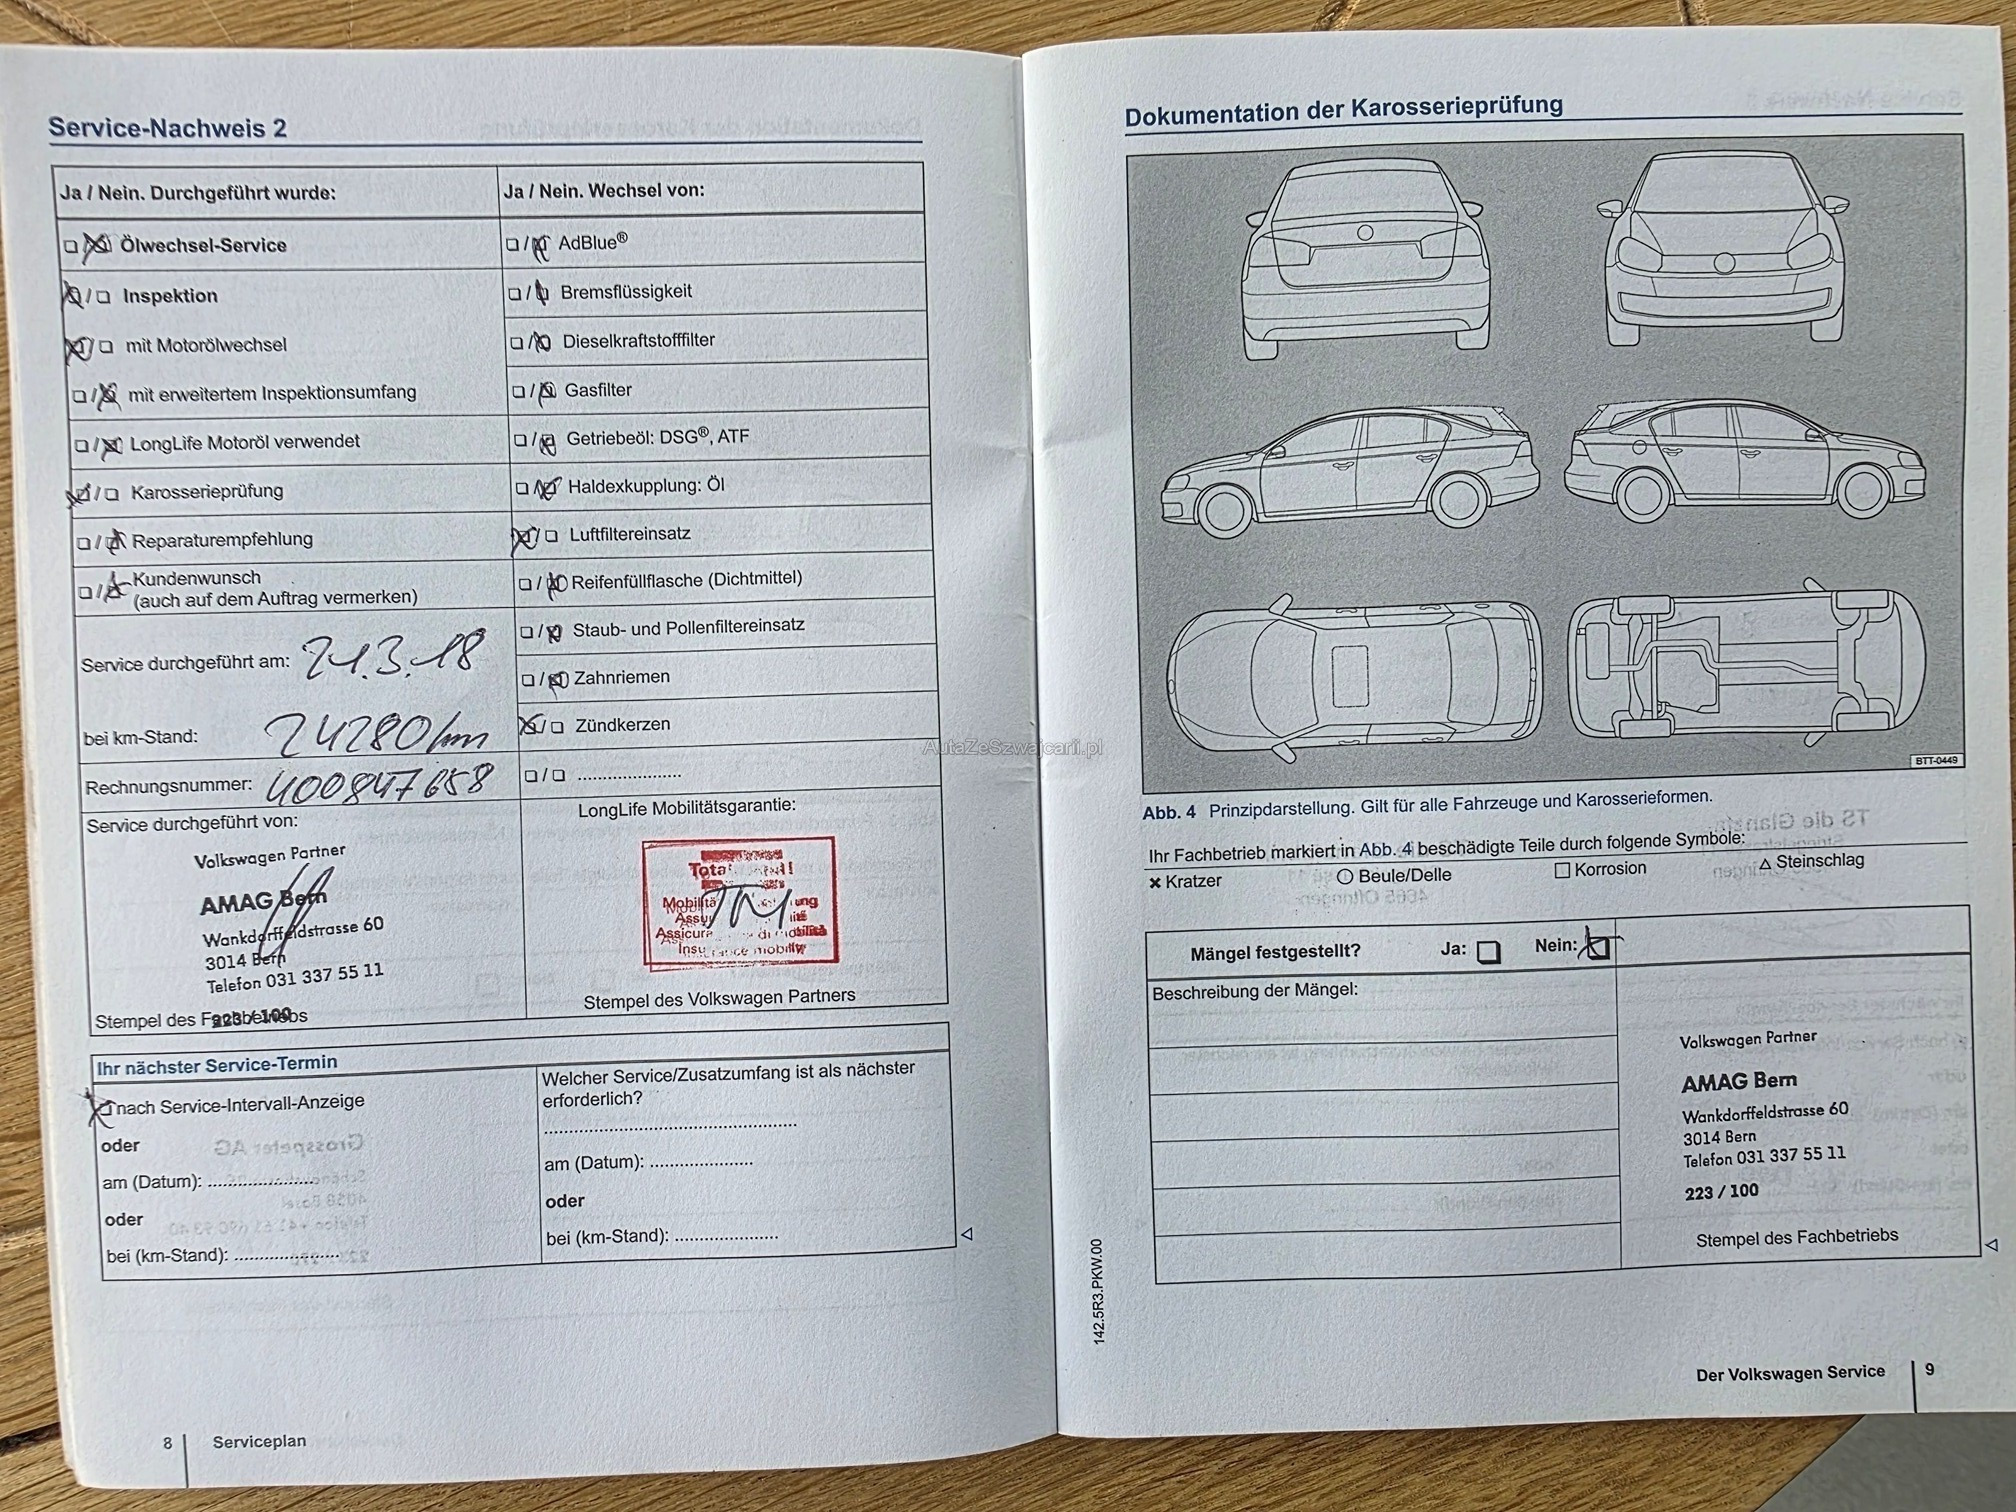 Service-Nachweis 2
Ja / Nein. Durchgeführt wurde:
Ölwechsel-Service
Inspektion
mit Motorölwechsel
mit erweitertem Inspektionsumfang
LongLife Motoröl verwendet
Karosserieprüfung
Reparaturempfehlung
Kundenwunsch
(auch auf dem Auftrag vermerken)
Service durchgeführt am: 21.3.18
bei km-Stand: 24280 km
Rechnungsnummer: 400847658
Service durchgeführt von:
Volkswagen Partner
AMAG Bern
Wankdorffeldstrasse 60
3014 Bern
Telefon 031 337 55 11
223 / 100
Stempel des Fachbetriebs
Ja / Nein. Wechsel von:
AdBlue®
Bremsflüssigkeit
Dieselkraftstofffilter
Gasfilter
Getriebeöl: DSG®, ATF
Haldexkupplung: Öl
Luftfiltereinsatz
Reifenfüllflasche (Dichtmittel)
Staub- und Pollenfiltereinsatz
Zahnriemen
Zündkerzen
/ ......................
LongLife Mobilitätsgarantie:
Stempel des Volkswagen Partners
Ihr nächster Service-Termin
nach Service-Intervall-Anzeige
oder
am (Datum): ......................
oder
bei (km-Stand): ......................
Welcher Service/Zusatzumfang ist als nächster
erforderlich?
am (Datum): ......................
oder
bei (km-Stand): ......................
8 Serviceplan
Dokumentation der Karosserieprüfung
BTT-0449
Abb. 4 Prinzipdarstellung. Gilt für alle Fahrzeuge und Karosserieformen.
Ihr Fachbetrieb markiert in Abb. 4 beschädigte Teile durch folgende Symbole:
Kratzer Beule/Delle Korrosion Steinschlag
Mängel festgestellt? Ja: Nein:
Beschreibung der Mängel:
Volkswagen Partner
AMAG Bern
Wankdorffeldstrasse 60
3014 Bern
Telefon 031 337 55 11
223 / 100
Stempel des Fachbetriebs
142.5R3.PKW.00
Der Volkswagen Service 9
AutaZeSzwajcarii.pl